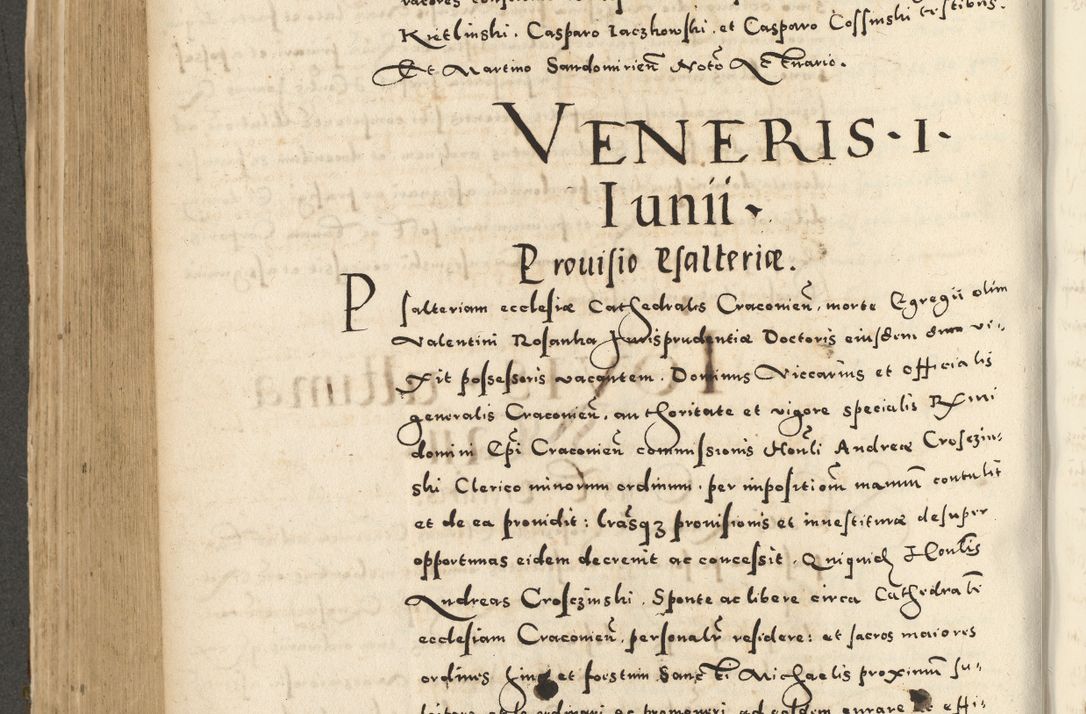 Kietlinski. Casparo Iaczkowski. et Casparo Cossinski testibus.
Et Martino Sandomirien̄ Noto Actuario.
VENERIS · I ·
Iunii ·
Provisio Psalteriæ.
Psalteriam ecclesiæ Cathedralis Cracovien̄. morte Egregii olim
Valentini Rosanka Iurisprudentiæ Doctoris eiusdem dum vi-
xit possessoris vacantem. Dominus Viccarius et officialis
generalis Cracovien̄. authoritate et vigore specialis Rx̄mi
domini Ep̄i Cracovien̄ commissionis Honl̄i Andreæ Crosczin-
ski Clerico minorum ordinum. per impositionē manuum contulit
et de ea providit: lr̄asqȝ provisionis et investituræ desuper
opportunas eidem decrevit ac concessit. Quiquidē Honl̄is
Andreas Crosczinski. Sponte ac libere circa Cathedralē
ecclesiam Cracovien̄. personalr̄ residere: et sacros maiores
ordines et festum Sancti Michaelis proximum fu-
ordinari ac promoveri ad eosdem curare et effi-